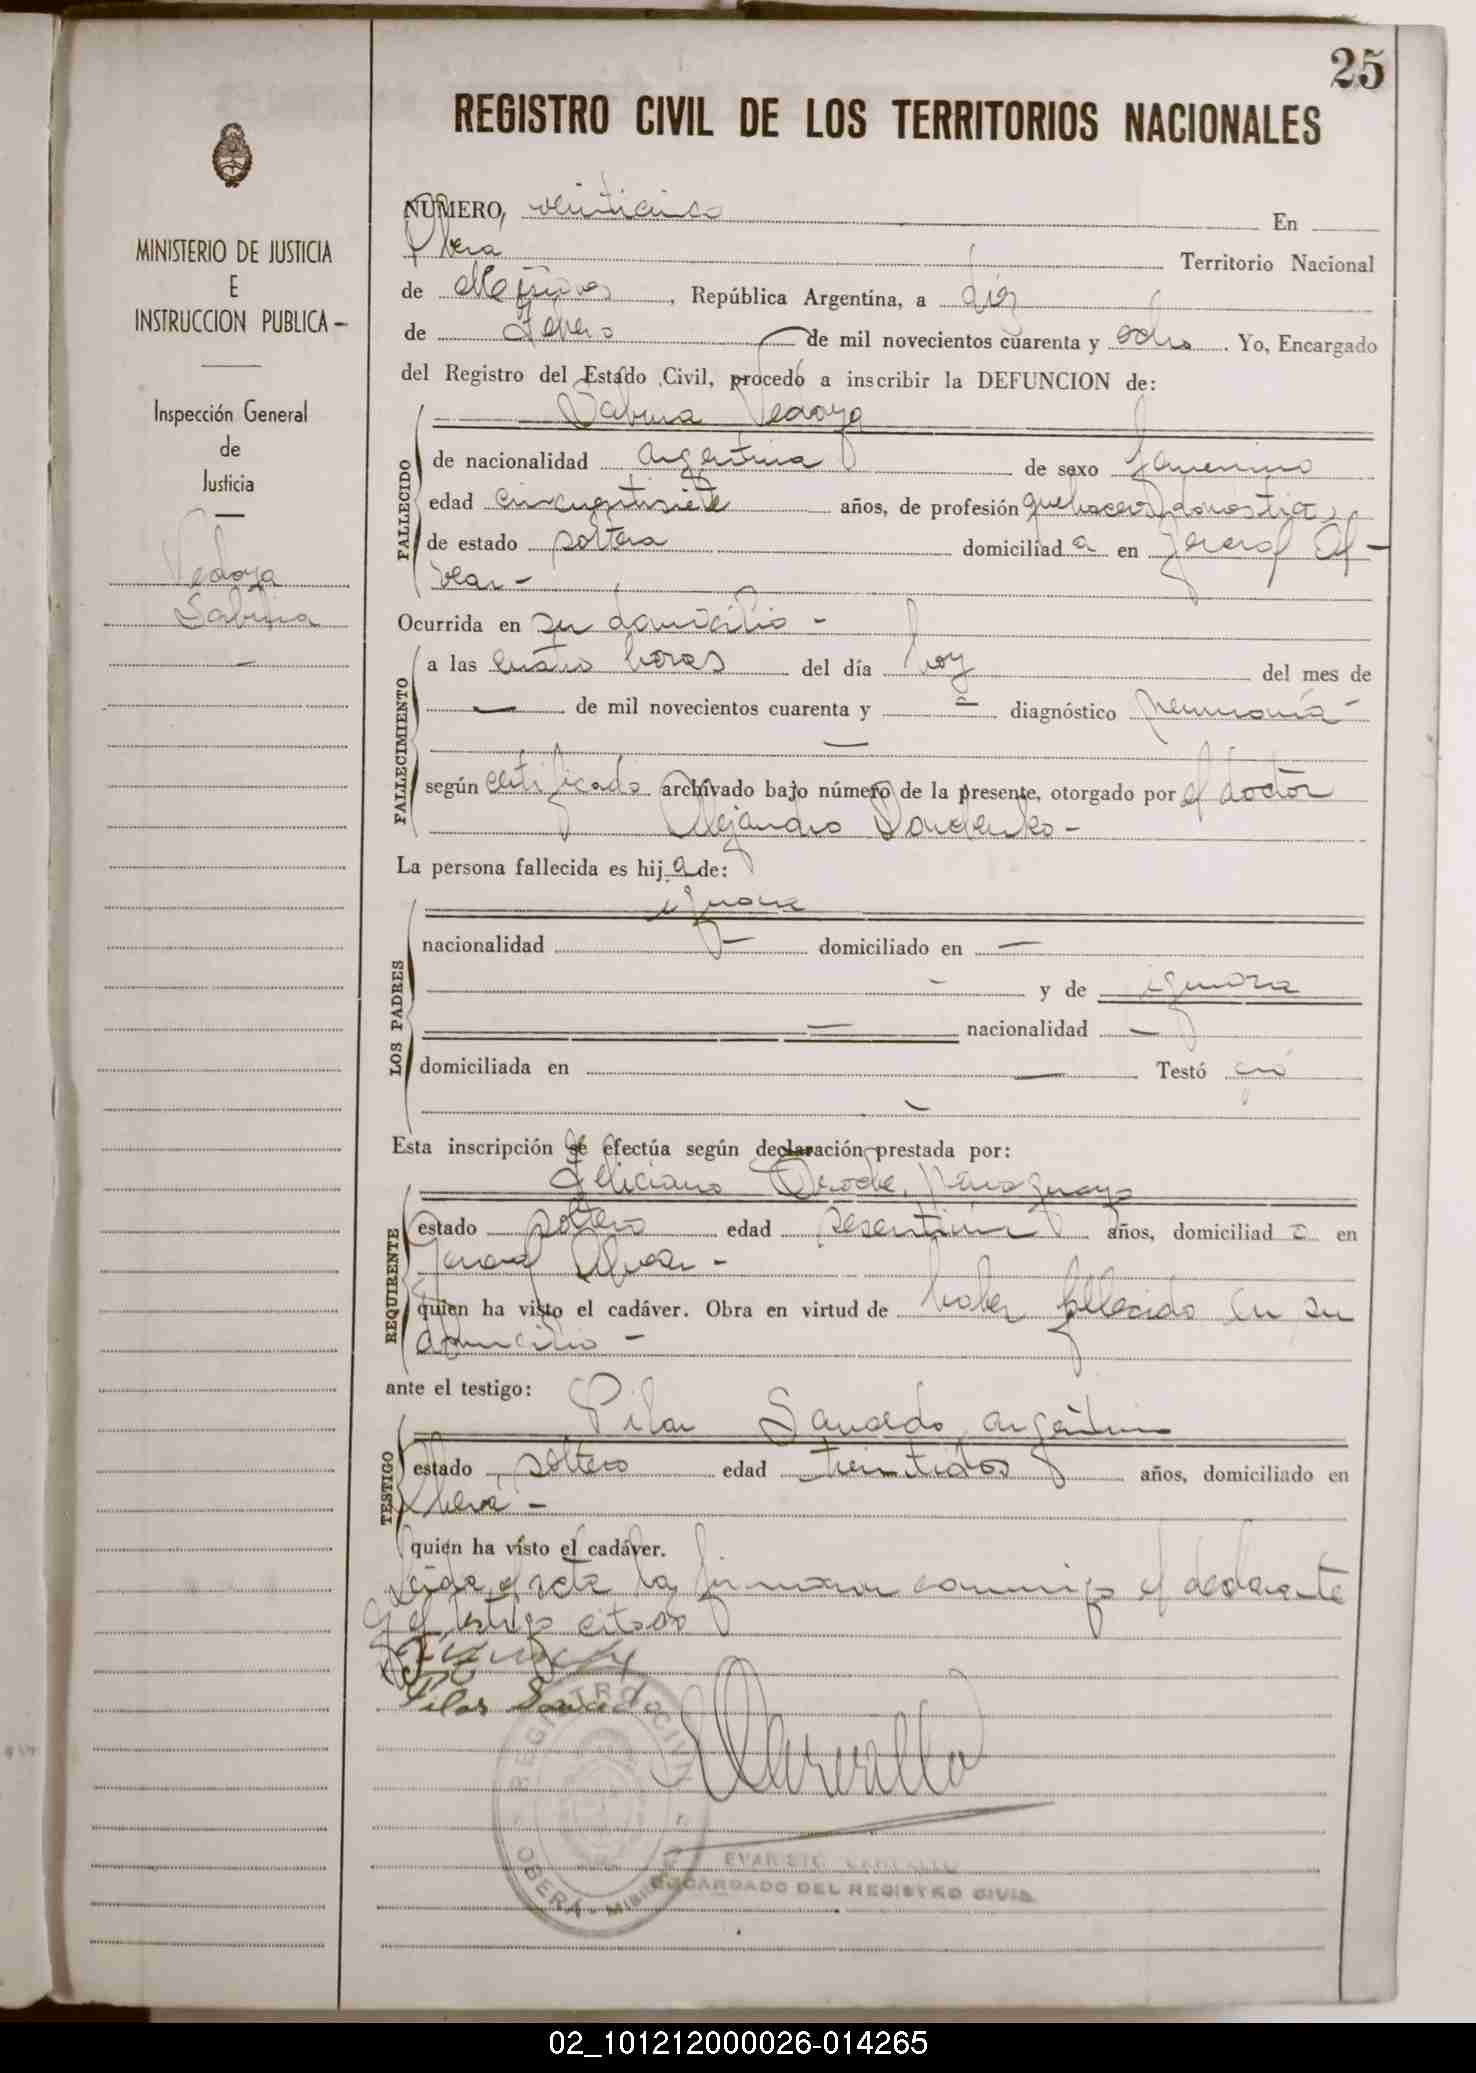 25
REGISTRO CIVIL DE LOS TERRITORIOS NACIONALES
MINISTERIO DE JUSTICIA
E
INSTRUCCION PUBLICA -
Inspección General
de
Justicia
Vedoya
Sabina
NUMERO, veinticinco En
Obera Territorio Nacional
de Misiones, República Argentina, a diez
de Febrero de mil novecientos cuarenta y ocho. Yo, Encargado
del Registro del Estado Civil, procedo a inscribir la DEFUNCION de:
Sabina Vedoya
FALLECIDO
de nacionalidad argentina de sexo femenino
edad cincuentisiete años, de profesión quehaceres domésticos
de estado soltera domiciliada en General Al-
vear -
Ocurrida en su domicilio -
FALLECIMIENTO
a las cuatro horas del día hoy del mes de
— de mil novecientos cuarenta y — diagnóstico neumonía -
según certificado archivado bajo número de la presente, otorgado por el doctor
Alejandro -
La persona fallecida es hija de:
LOS PADRES
ignora
nacionalidad — domiciliado en —
— y de ignora
— nacionalidad —
domiciliada en — Testó
Esta inscripción se efectúa según declaración prestada por:
REQUIRENTE
Feliciano paraguayo
estado soltero edad sesentiun años, domiciliado en
General Alvear -
quien ha visto el cadáver. Obra en virtud de haber fallecido en su
domicilio -
ante el testigo:
TESTIGO
Pilar argentino
estado soltero edad treintidos años, domiciliado en
Oberá -
quien ha visto el cadáver.
Leida el acta la firmaron conmigo el declarante
y el testigo citado
Pilar
REGISTRO CIVIL
OBERA - MISIONES
EVARISTO CARVALLO
ENCARGADO DEL REGISTRO CIVIL
02_101212000026-014265